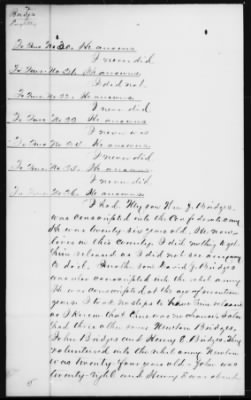 To Ques. No. 20. He answers
I never did
To Ques. No. 21. He answers
I did not.
To Ques. No. 22. He answers
I never did
To Ques. No. 23. He answers
I never was
To Ques. No. 24. He answers
I never did
To Ques. No. 25. He answers
I never did
To Ques. No. 26. He answers
I had. My son Wm J. Bridges
was conscripted into the Confederate army
He was twenty-six years old. He now
lives in this County. I did nothing to get
him released as I did not see any way
to do it. Another son David J. Bridges
was also conscripted into the rebel army
He was conscripted at the age of seventeen
years. I took no steps to have him released
as I knew that there was no chance. I also
had three other sons Newton Bridges,
John Bridges and Henry C. Bridges. They
volunteered into the rebel army. Newton
was twenty four years old - John was
twenty-eight and Henry C was about